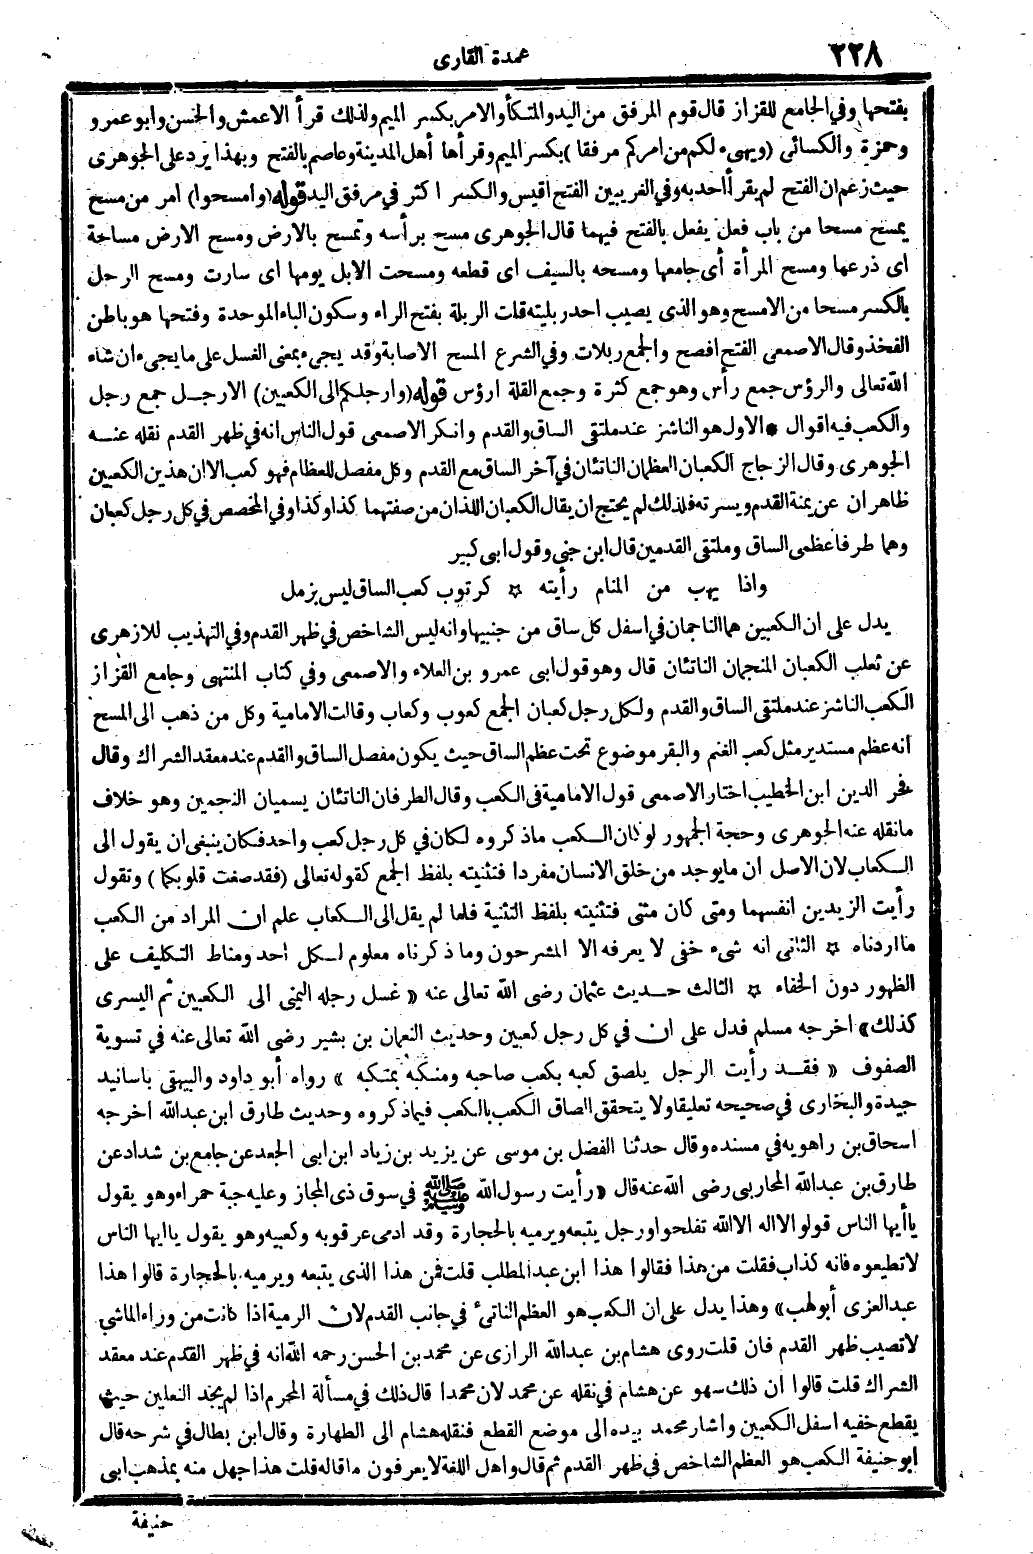 ٢٢٨
عمدة القارى
بفتحها وفي الجامع للقزاز قال قوم المرفق من اليد والمتكأ والامر بكسر الميم ولذلك قرأ الاعمش والحسن وابو عمرو
وحمزة والكسائى (ويهيء لكم من امركم مرفقا) بكسر الميم وقرأها أهل المدينة وعاصم بالفتح وبهذا يرد على الجوهرى
حيث زعم ان الفتح لم يقرأ أحد به وفي الغريبين الفتح اقيس والكسر اكثر في مرفق اليد قوله (وامسحوا) امر من مسح
يمسح مسحا من باب فعل يفعل بالفتح فيهما قال الجوهرى مسح برأسه وتمسح بالارض ومسح الارض مساحة
اى ذرعها ومسح المرأة أى جامعها ومسحه بالسيف اى قطعه ومسحت الابل يومها اى سارت ومسح الرجل
بالكسر مسحا من الامسح وهو الذى يصيب احد ربليته قلت الربلة بفتح الراء وسكون الباء الموحدة وفتحها هو باطن
الفخذ وقال الاصمعى الفتح افصح والجمع ربلات وفي الشرع المسح الاصابة وقد يجيء بمعنى الغسل على ما يجيء ان شاء
الله تعالى والرؤس جمع رأس وهو جمع كثرة وجمع القلة ارؤس قوله (وارجلكم الى الكعبين) الارجل جمع رجل
والكعب فيه اقوال * الاول هو الناشز عند ملتقى الساق والقدم وانكر الاصمعى قول الناس انه في ظهر القدم نقله عنه
الجوهرى وقال الزجاج الكعبان العظمان الناتئان في آخر الساق مع القدم وكل مفصل للعظام فهو كعب الا ان هذين الكعبين
ظاهران عن يمنة القدم ويسرته فلذلك لم يحتج ان يقال الكعبان اللذان من صفتهما كذا وكذا وفي المخصص في كل رجل كعبان
وهما طرفا عظمى الساق وملتقى القدمين قال ابن جنى وقول ابى كبير
واذا يهب من المنام رأيته ☆ كرتوب كعب الساق ليس بزمل
يدل على ان الكعبين هما الناجمان في اسفل كل ساق من جنبيها وانه ليس الشاخص في ظهر القدم وفي التهذيب للازهرى
عن ثعلب الكعبان المنجمان الناتئان قال وهو قول ابى عمرو بن العلاء والاصمعى وفي كتاب المنتهى وجامع القزاز
الكعب الناشز عند ملتقى الساق والقدم ولكل رجل كعبان الجمع كعوب وكعاب وقالت الامامية وكل من ذهب الى المسح
انه عظم مستدير مثل كعب الغنم والبقر موضوع تحت عظم الساق حيث يكون مفصل الساق والقدم عند معقد الشراك وقال
فخر الدين ابن الخطيب اختار الاصمعى قول الامامية في الكعب وقال الطرفان الناتئان يسميان النجمين وهو خلاف
ما نقله عنه الجوهرى وحجة الجمهور لو كان الكعب ما ذكروه لكان في كل رجل كعب واحد فكان ينبغى ان يقول الى
الكعاب لان الاصل ان ما يوجد من خلق الانسان مفردا فتثنيته بلفظ الجمع كقوله تعالى (فقد صغت قلوبكما) وتقول
رأيت الزيدين انفسهما ومتى كان مثنى فتثنيته بلفظ التثنية فلما لم يقل الى الكعاب علم ان المراد من الكعب
ما اردناه ☆ الثانى انه شيء خفى لا يعرفه الا المشرحون وما ذكرناه معلوم لكل احد ومناط التكليف على
الظهور دون الخفاء ☆ الثالث حديث عثمان رضى الله تعالى عنه «غسل رجله اليمنى الى الكعبين ثم اليسرى
كذلك» اخرجه مسلم فدل على ان في كل رجل كعبين وحديث النعمان بن بشير رضى الله تعالى عنه في تسوية
الصفوف «فقد رأيت الرجل يلصق كعبه بكعب صاحبه ومنكبه بمنكبه» رواه أبو داود والبيهقى باسانيد
جيدة والبخارى في صحيحه تعليقا ولا يتحقق الصاق الكعب بالكعب فيما ذكروه وحديث طارق ابن عبد الله اخرجه
اسحاق بن راهويه في مسنده وقال حدثنا الفضل بن موسى عن يزيد بن زياد ابن ابى الجعد عن جامع بن شداد عن
طارق بن عبد الله المحاربى رضى الله عنه قال «رأيت رسول الله ﷺ في سوق ذى المجاز وعليه جبة حمراء وهو يقول
يا أيها الناس قولوا لا اله الا الله تفلحوا ورجل يتبعه ويرميه بالحجارة وقد ادمى عرقوبه وكعبيه وهو يقول يا ايها الناس
لا تطيعوه فانه كذاب فقلت من هذا فقالوا هذا ابن عبد المطلب قلت فمن هذا الذى يتبعه ويرميه بالحجارة قالوا هذا
عبد العزى أبو لهب» وهذا يدل على ان الكعب هو العظم الناتئ في جانب القدم لان الرمية اذا كانت من وراء الماشى
لا تصيب ظهر القدم فان قلت روى هشام بن عبد الله الرازى عن محمد بن الحسن رحمه الله انه في ظهر القدم عند معقد
الشراك قلت قالوا ان ذلك سهو عن هشام في نقله عن محمد لان محمدا قال ذلك في مسألة المحرم اذا لم يجد النعلين حيث
يقطع خفيه اسفل الكعبين واشار محمد بيده الى موضع القطع فنقله هشام الى الطهارة وقال ابن بطال في شرحه قال
ابو حنيفة الكعب هو العظم الشاخص في ظهر القدم ثم قال واهل اللغة لا يعرفون ما قاله قلت هذا جهل منه بمذهب ابى
حنيفة